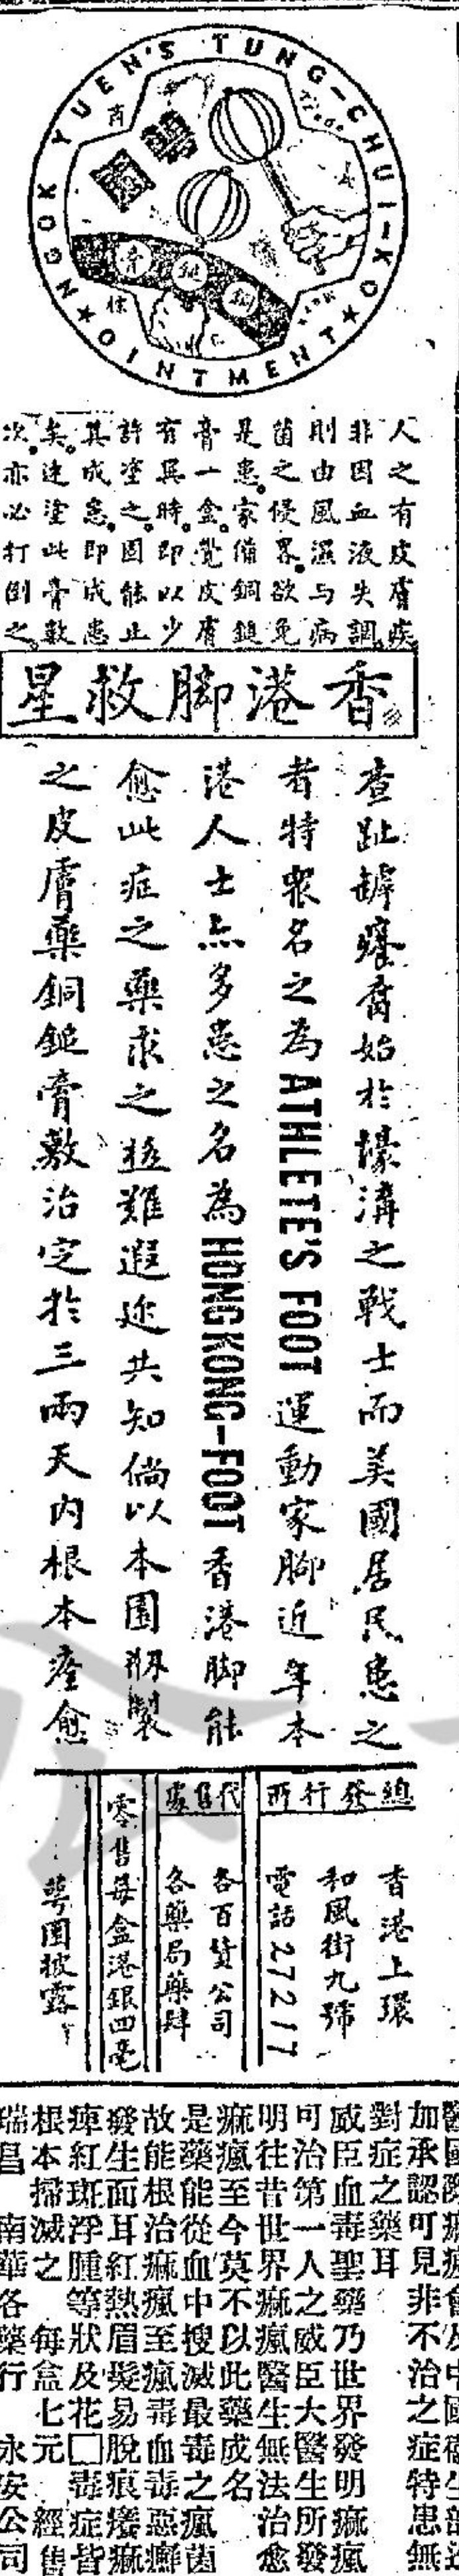 NGOK YUEN'S TUNG-CHUI-KO
OINTMENT
商
標
膏
鎚
銅
人之有皮膚疾
非因血液失調
則由風濕与病
菌之侵界欲免
是患家備銅鎚
膏一盒覺皮膚
有異時即以少
許塗之固能止
其成患即成患
矣速塗此膏數
次亦必打倒之
香港脚救星
查趾罅癢腐始於壕溝之戰士而美國居民患之
者特衆名之為ATHLETE'S FOOT運動家脚近年本
港人士亦多患之名為HONGKONG-FOOT香港脚能
愈此症之藥求之極難遐迩共知倘以本園製
之皮膚藥銅鎚膏敷治定於三兩天内根本痊愈
總發行所
香港上環
和風街九號
電話27217
代售處
各百貨公司
各藥局藥肆
零售每盒港銀四毫
萼園披露
加承認可見非不治之症特患無
對症之藥耳
威臣血毒聖藥乃世界發明痲瘋
可治第一人之威臣大醫生所發
明往昔世界痲瘋醫生無法治愈
痲瘋至今莫不以此藥成名
是藥能從血中搜滅最毒之瘋菌
故能根治痲瘋至瘋毒血毒惡癬
發生面耳紅熱眉髮易脫痕癢痲
痺紅斑浮腫等狀及花□毒症皆
根本掃滅之 每盒七元 經售
瑞昌 南華各藥行 永安公司